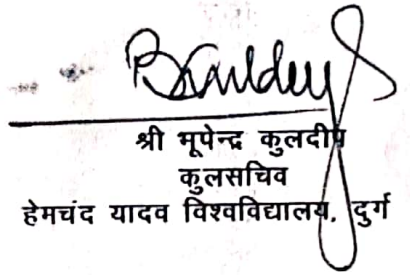 श्री भूपेन्द्र कुलदीप
कुलसचिव
हेमचंद यादव विश्वविद्यालय, दुर्ग